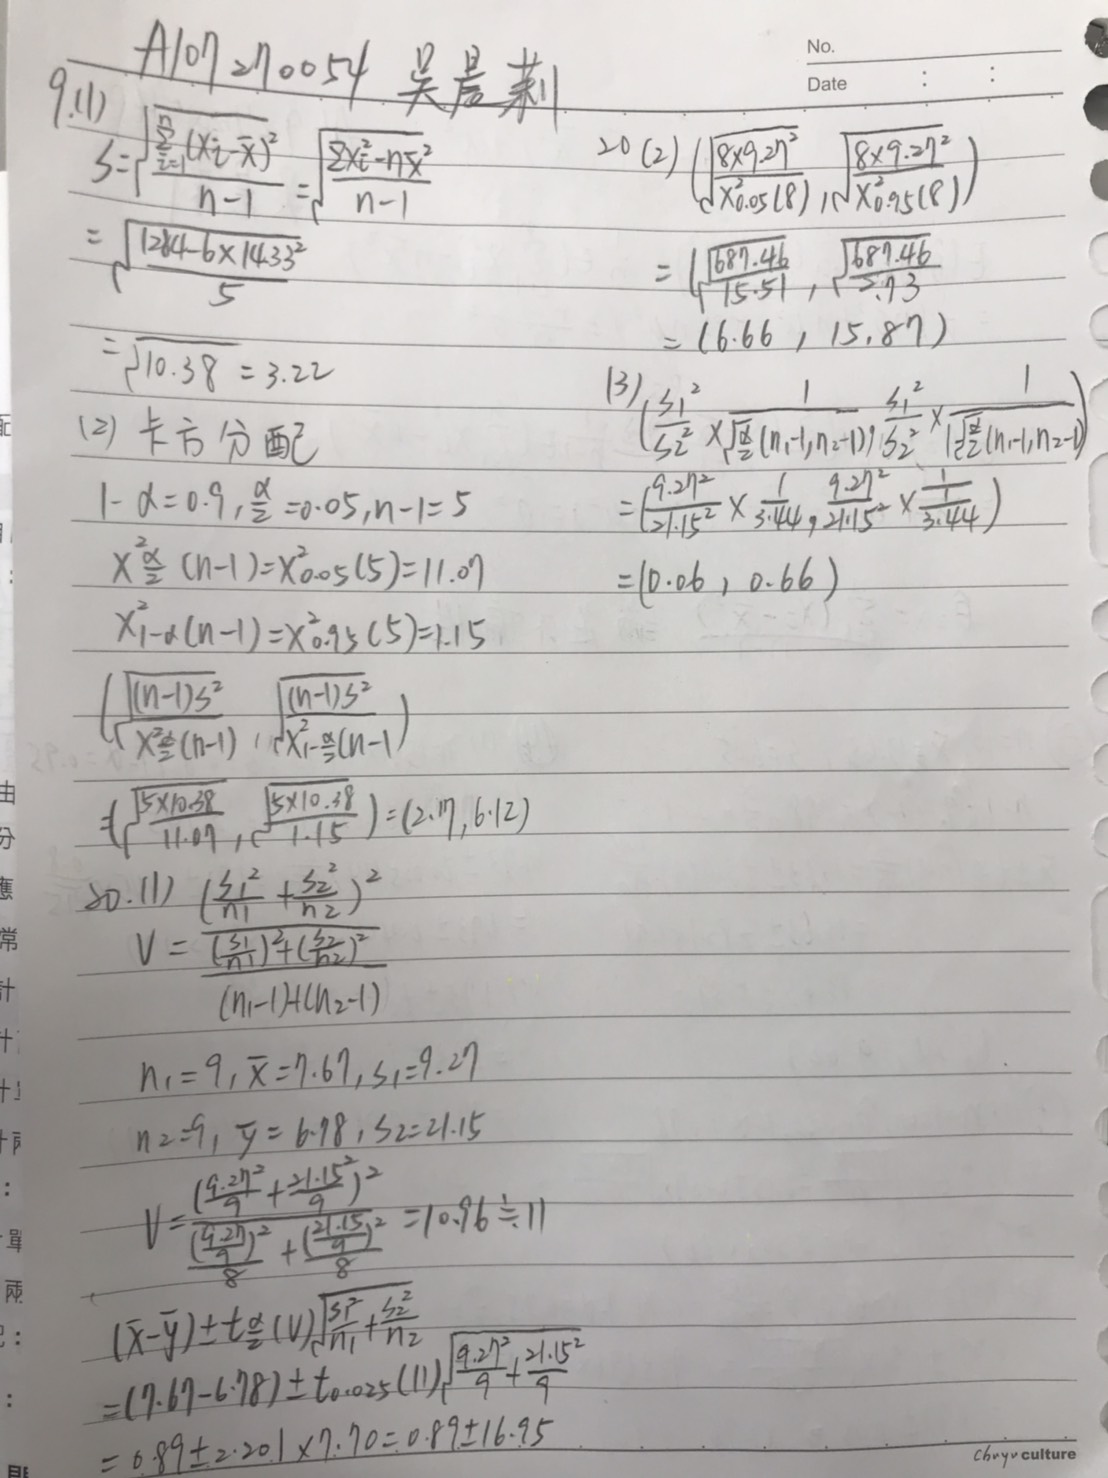 No.
Date : :
A107270054 吳晨莉
9.(1)
S=√(Σ(i=1→n)(xi-x̄)²/(n-1)) = √((Σxi²-nx̄²)/(n-1))
= √((1284-6×14.33²)/5)
= √10.38 = 3.22
(2) 卡方分配
1-α=0.9, α/2=0.05, n-1=5
X²α/2 (n-1)=X²0.05(5)=11.07
X²1-α(n-1)=X²0.95(5)=1.15
(√((n-1)S²/X²α/2(n-1)), √((n-1)S²/X²1-α/2(n-1))
=(√(5×10.38/11.07), √(5×10.38/1.15))=(2.17, 6.12)
20.(1) (S1²/n1 + S2²/n2)²
V = / ((S1/n1)²+(S2/n2)²) / (n1-1)+(n2-1)
n1=9, x̄=7.67, S1=9.27
n2=9, ȳ=6.78, S2=21.15
V= (9.27²/9 + 21.15²/9)² / ((9.27/9)²/8 + (21.15/9)²/8) =10.96≒11
(x̄-ȳ)±tα/2(V)√(S1²/n1 + S2²/n2)
=(7.67-6.78)±t0.025(11)√(9.27²/9 + 21.15²/9)
=0.89±2.201×7.70=0.89±16.95
20 (2) (√(8×9.27²/X²0.05(8)), √(8×9.27²/X²0.95(8)))
= (√(687.46/15.51), √(687.46/2.73))
= (6.66, 15.87)
(3) (S1²/S2² × 1/√α/2(n1-1,n2-1), S1²/S2² × 1/1√α/2(n1-1,n2-1))
=(9.27²/21.15² × 1/3.44, 9.27²/21.15² × 1/(1/3.44))
=(0.06, 0.66)
culture